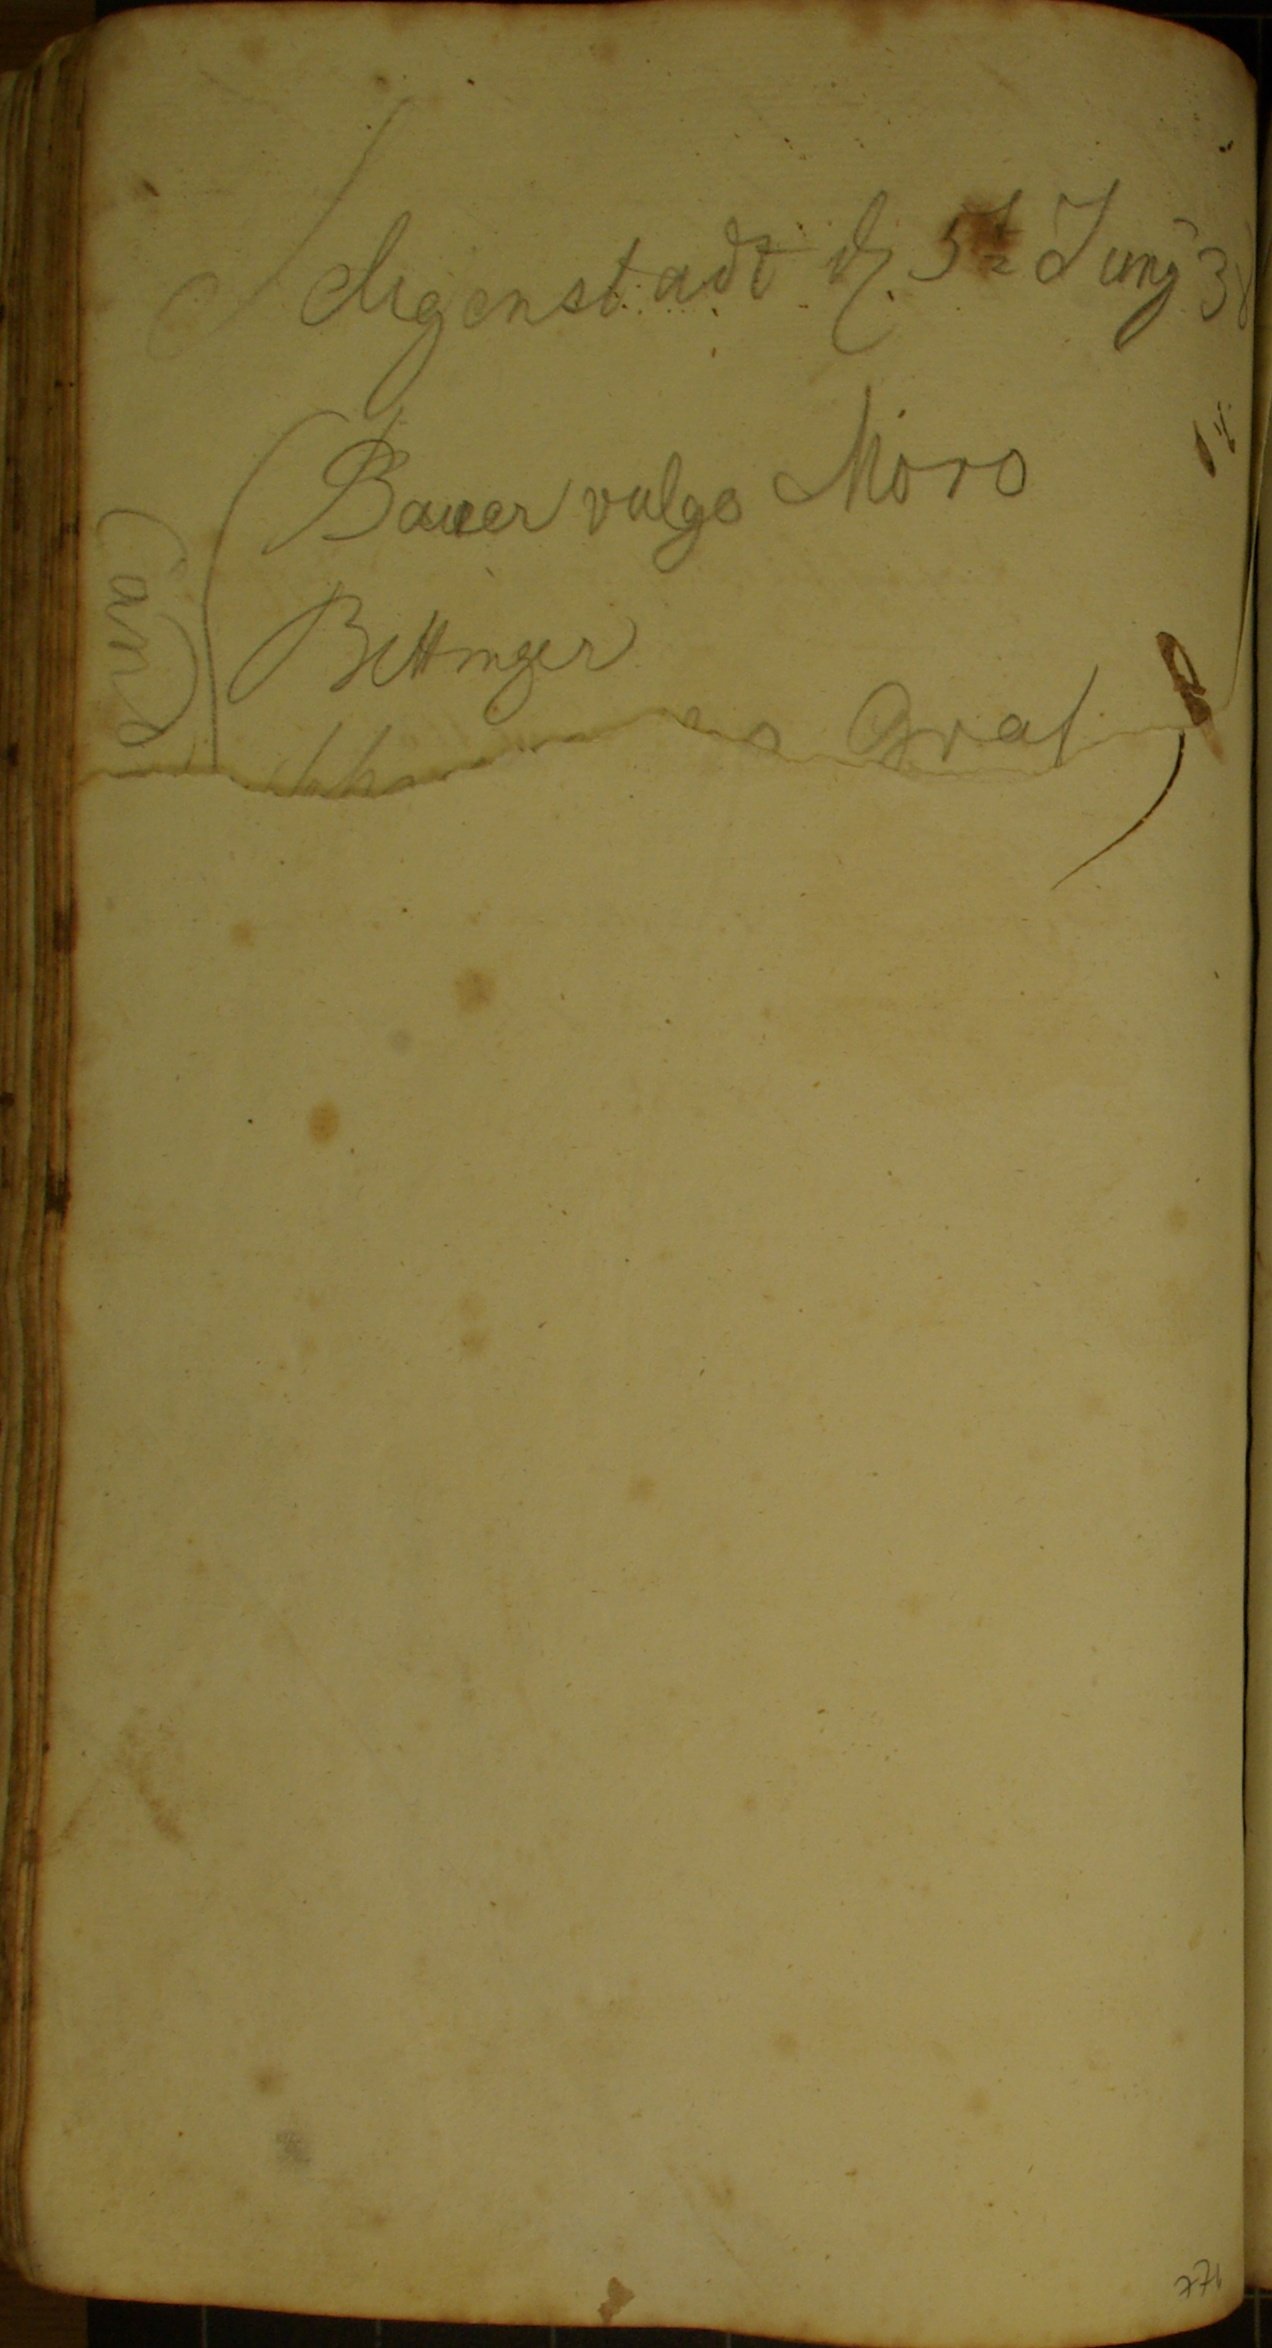 Seligenstadt d. 5t Juny 38
Bauer vulgo Moro
Bittinger
Graf
Cand